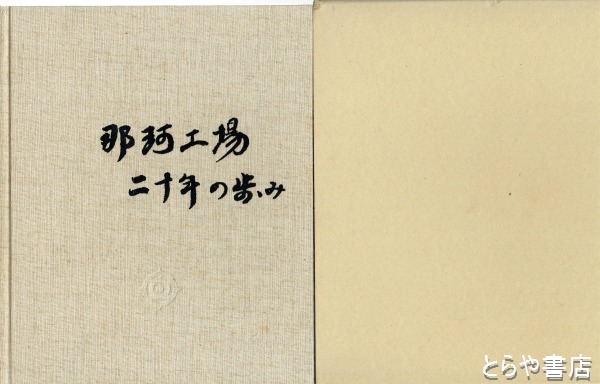 那珂工場
二十年の歩み
とらや書店